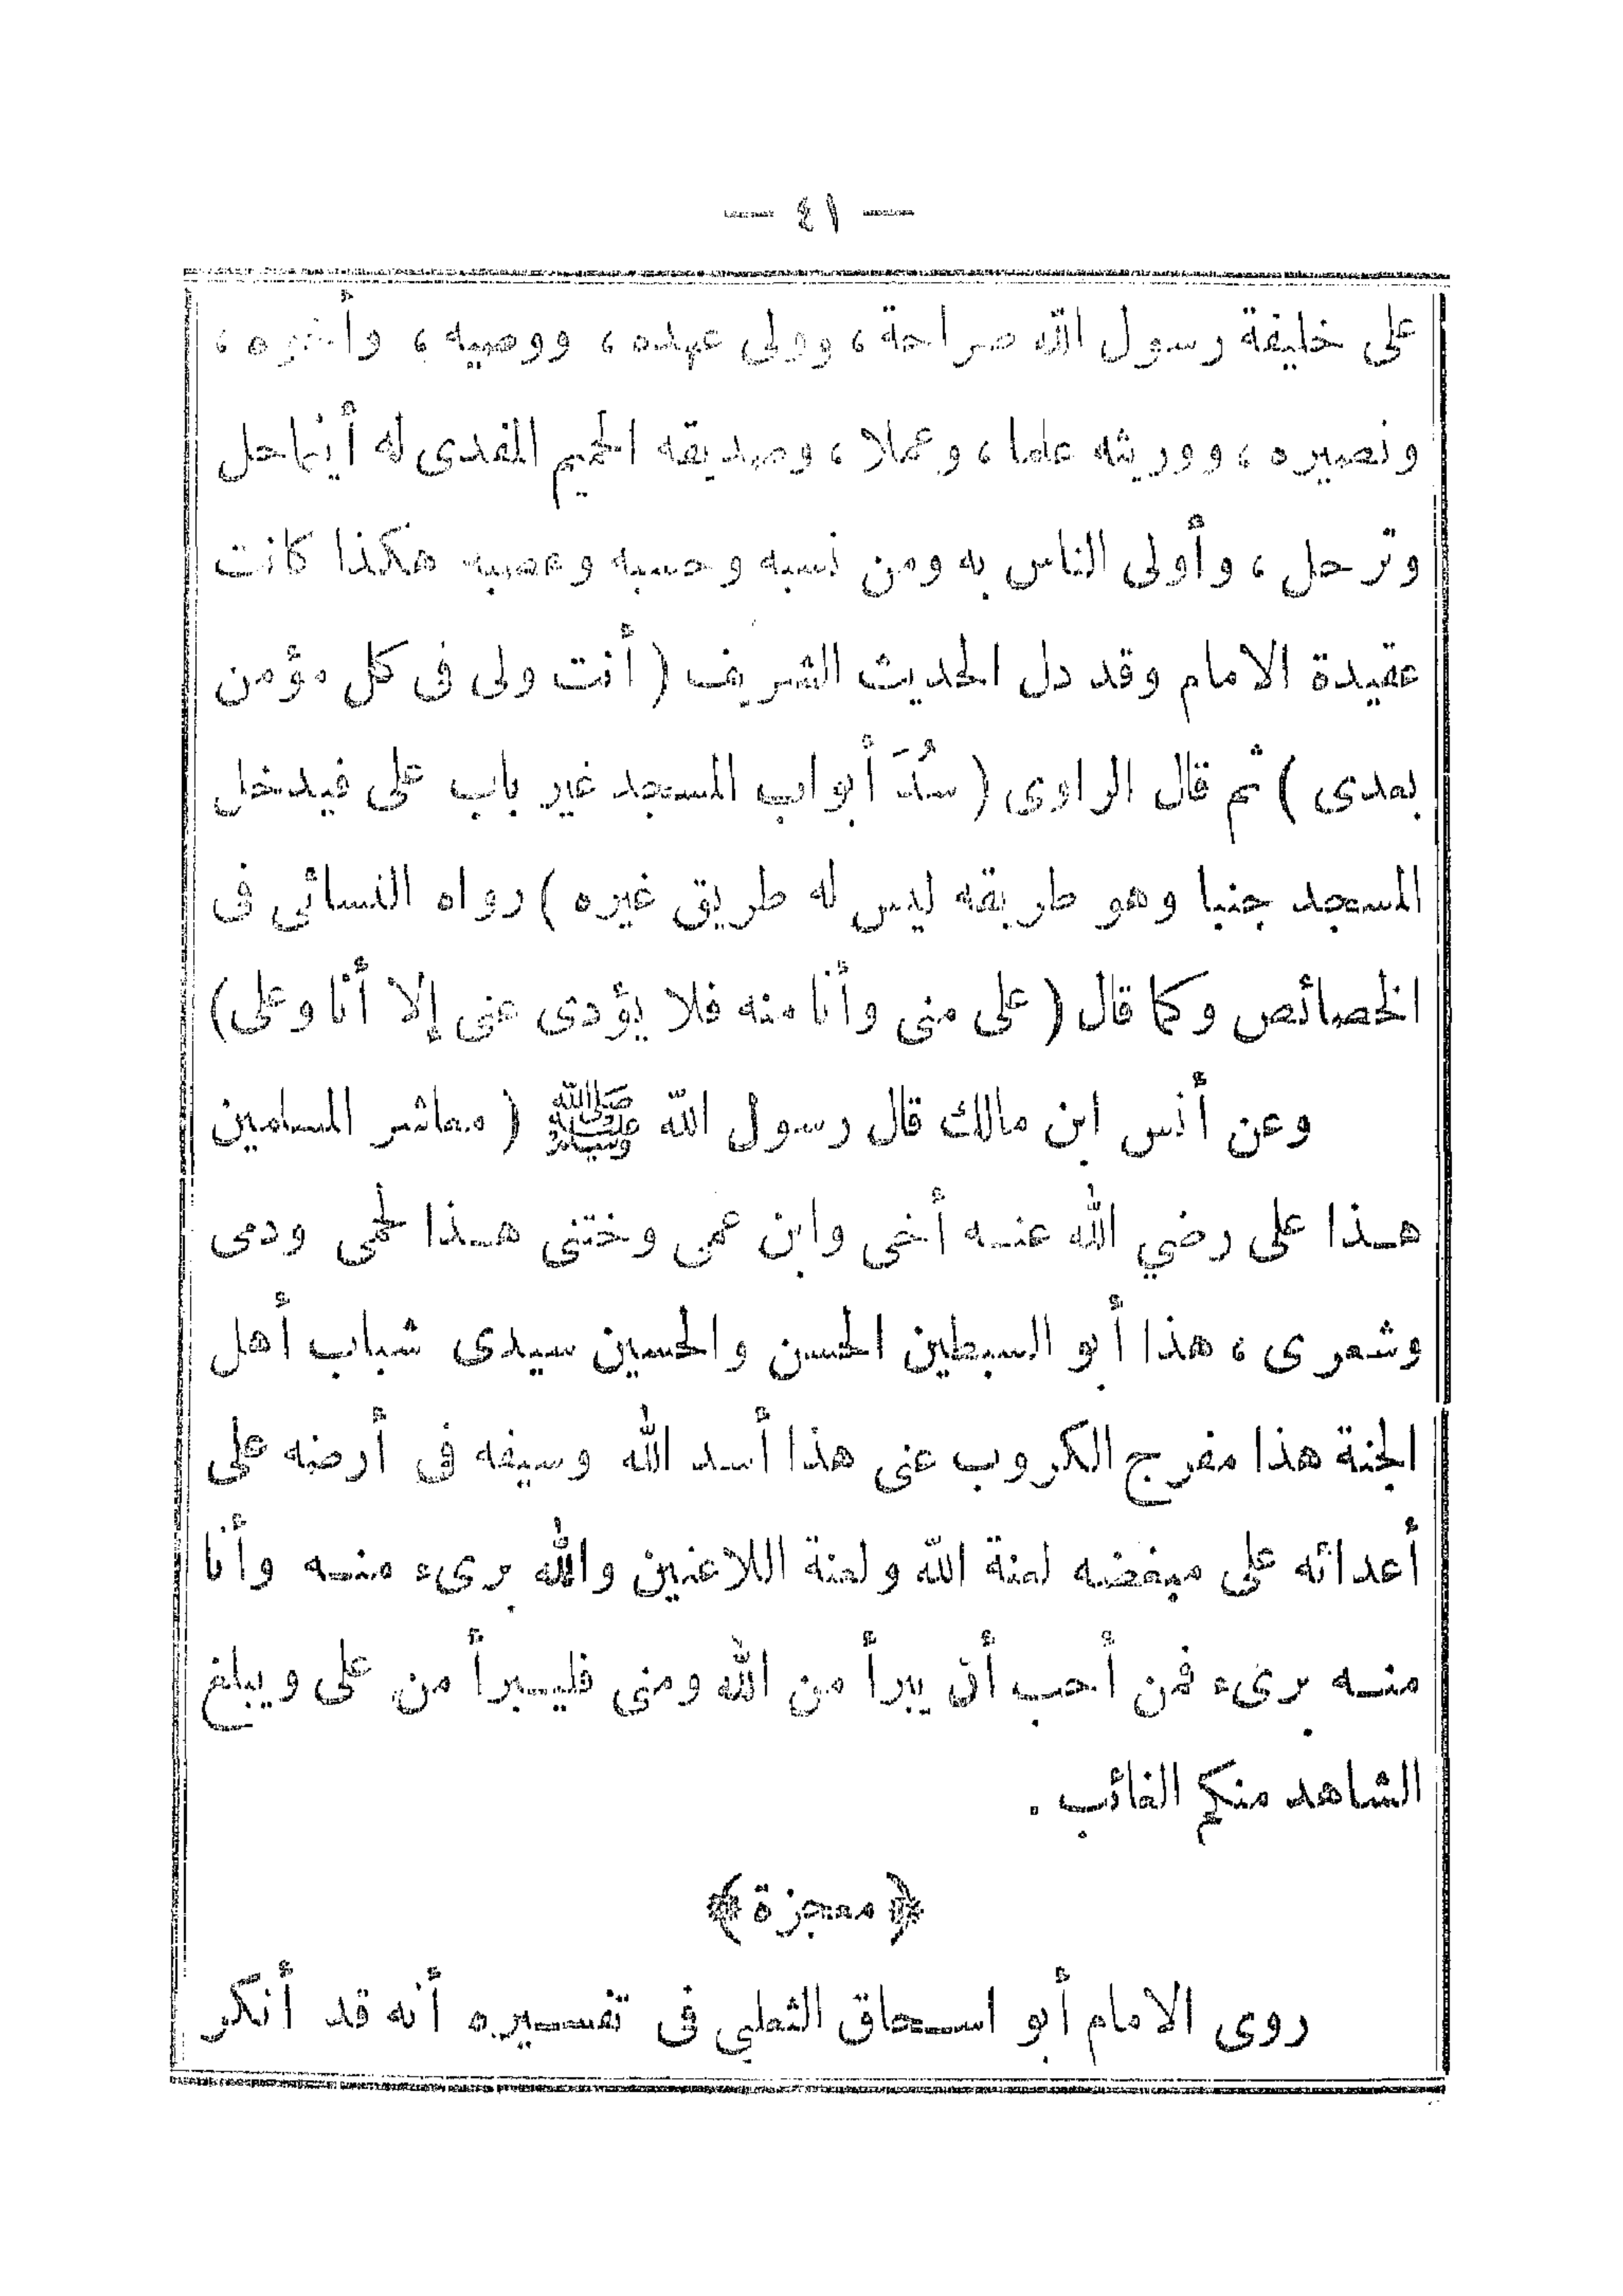 — ٤١ —
على خليفة رسول الله صراحة ، وولى عهده ، ووصيه ، وأخوه ،
ونصيره ، ووريثه علما ، وعملا ، وصديقه الحميم المفدى له أينما حل
وترحل ، وأولى الناس به ومن نسبه وحسبه وعصبه هكذا كانت
عقيدة الامام وقد دل الحديث الشريف ( أنت ولى فى كل مؤمن
بعدى ) ثم قال الراوى ( سُدَ أبواب المسجد غير باب على فيدخل
المسجد جنبا وهو طريقه ليس له طريق غيره ) رواه النسائى فى
الخصائص وكما قال ( على منى وأنا منه فلا يؤدى عنى إلا أنا وعلى )
وعن أنس ابن مالك قال رسول الله ﷺ ( معاشر المسلمين
هـذا على رضي الله عنـه أخى وابن عمى وختنى هـذا لحمى ودمى
وشعرى ، هذا أبو السبطين الحسن والحسين سيدى شباب أهل
الجنة هذا مفرج الكروب عنى هذا أسد الله وسيفه فى أرضه على
أعدائه على مبغضه لعنة الله ولعنة اللاعنين والله برىء منـه وأنا
منـه برىء فمن أحب أن يبرأ من الله ومنى فليـبرأ من على ويبلغ
الشاهد منكم الغائب .
﴿ معجزة ﴾
روى الامام أبو اسـحاق الثعلبي فى تفسـيره أنه قد أنكر